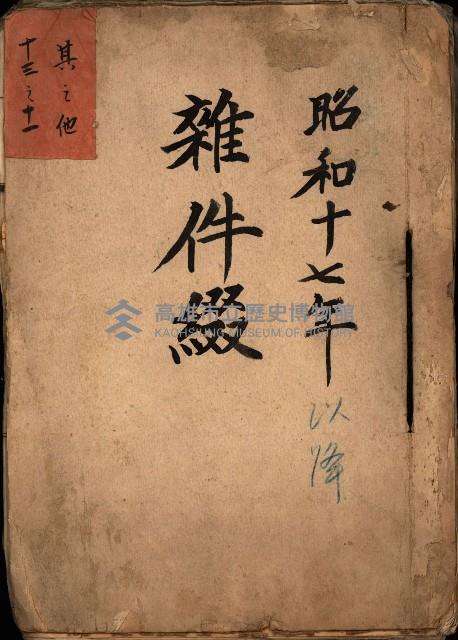 昭和十七年以降
雜件綴
其之他
十三之十一
高雄市立歷史博物館
KAOHSIUNG MUSEUM OF HISTORY